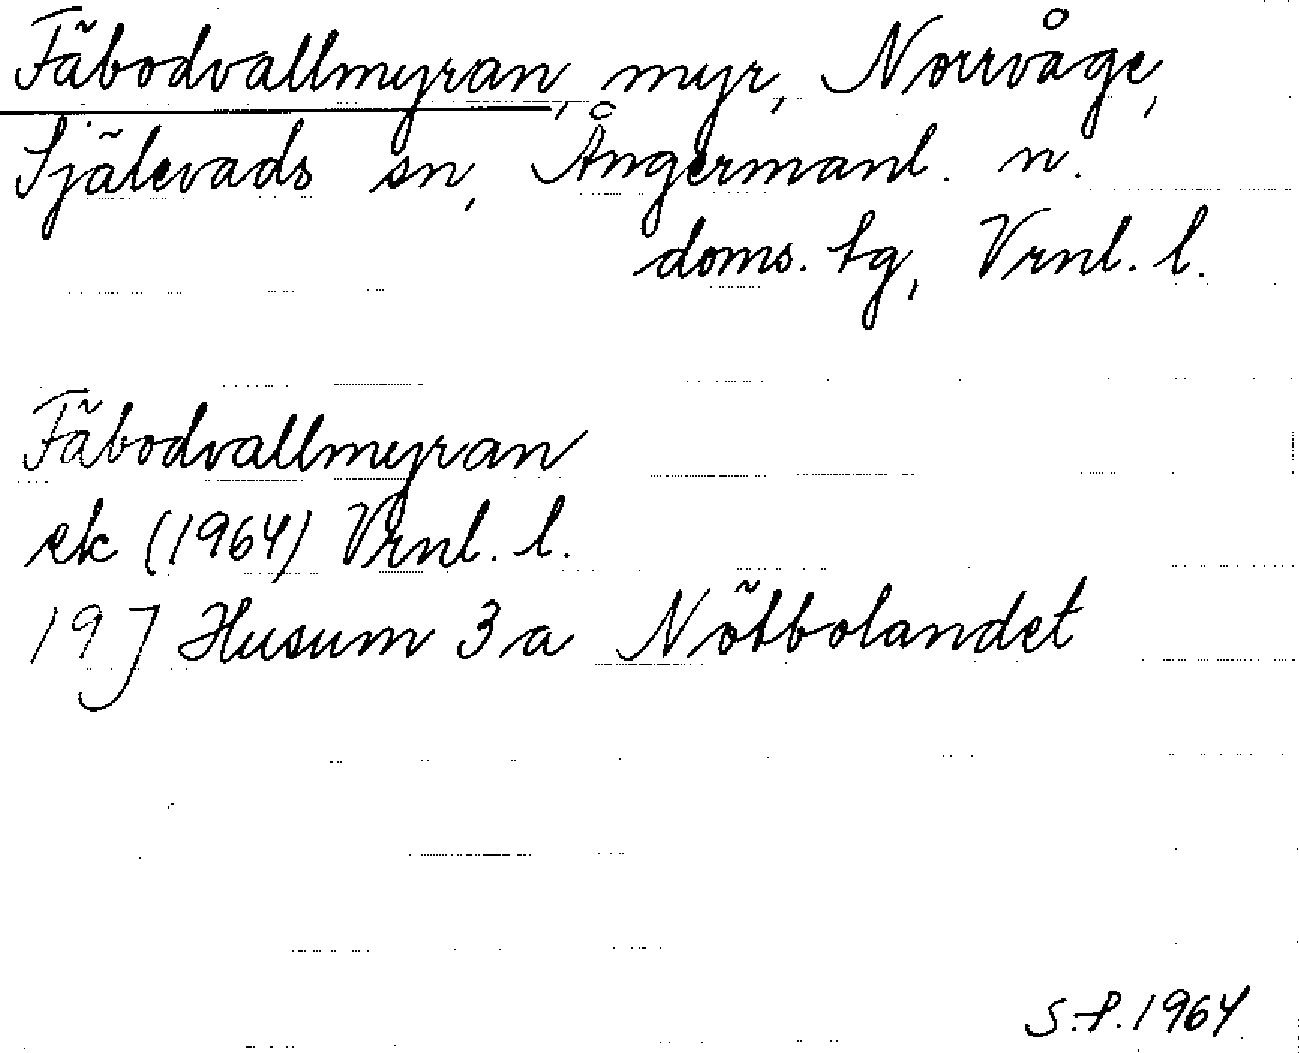 Fäbodvallmyran, myr, Norrvåge,
Själevads sn, Ångermanl. n.
doms. tg, Vrnl. l.
Fäbodvallmyran
ek (1964) Vrnl. l.
19 J Husum 3a Nötbolandet
S.P. 1964